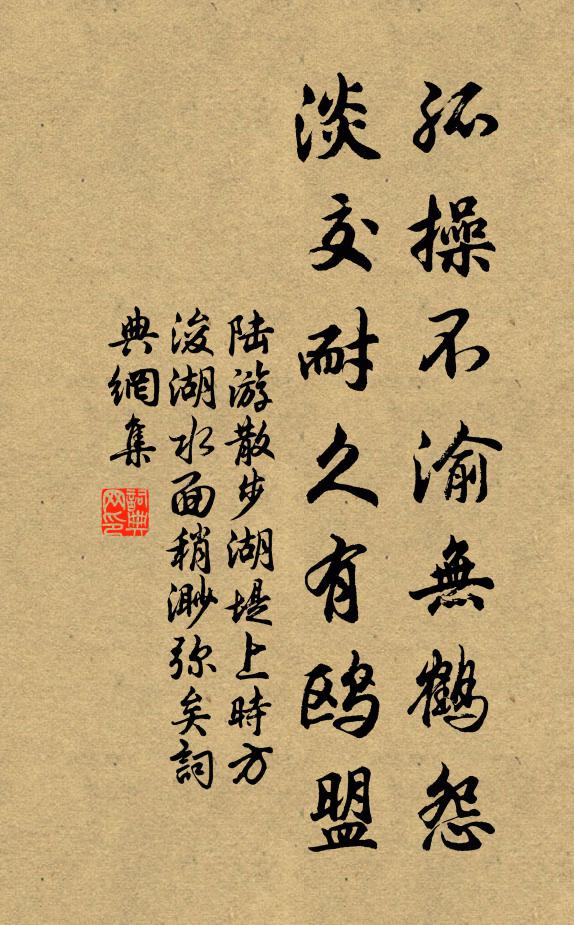 孤操不渝無鶴怨
淡交耐久有鷗盟
陆游散步湖堤上時方
浚湖水面稍渺弥矣詞
典網集
詞典
网印